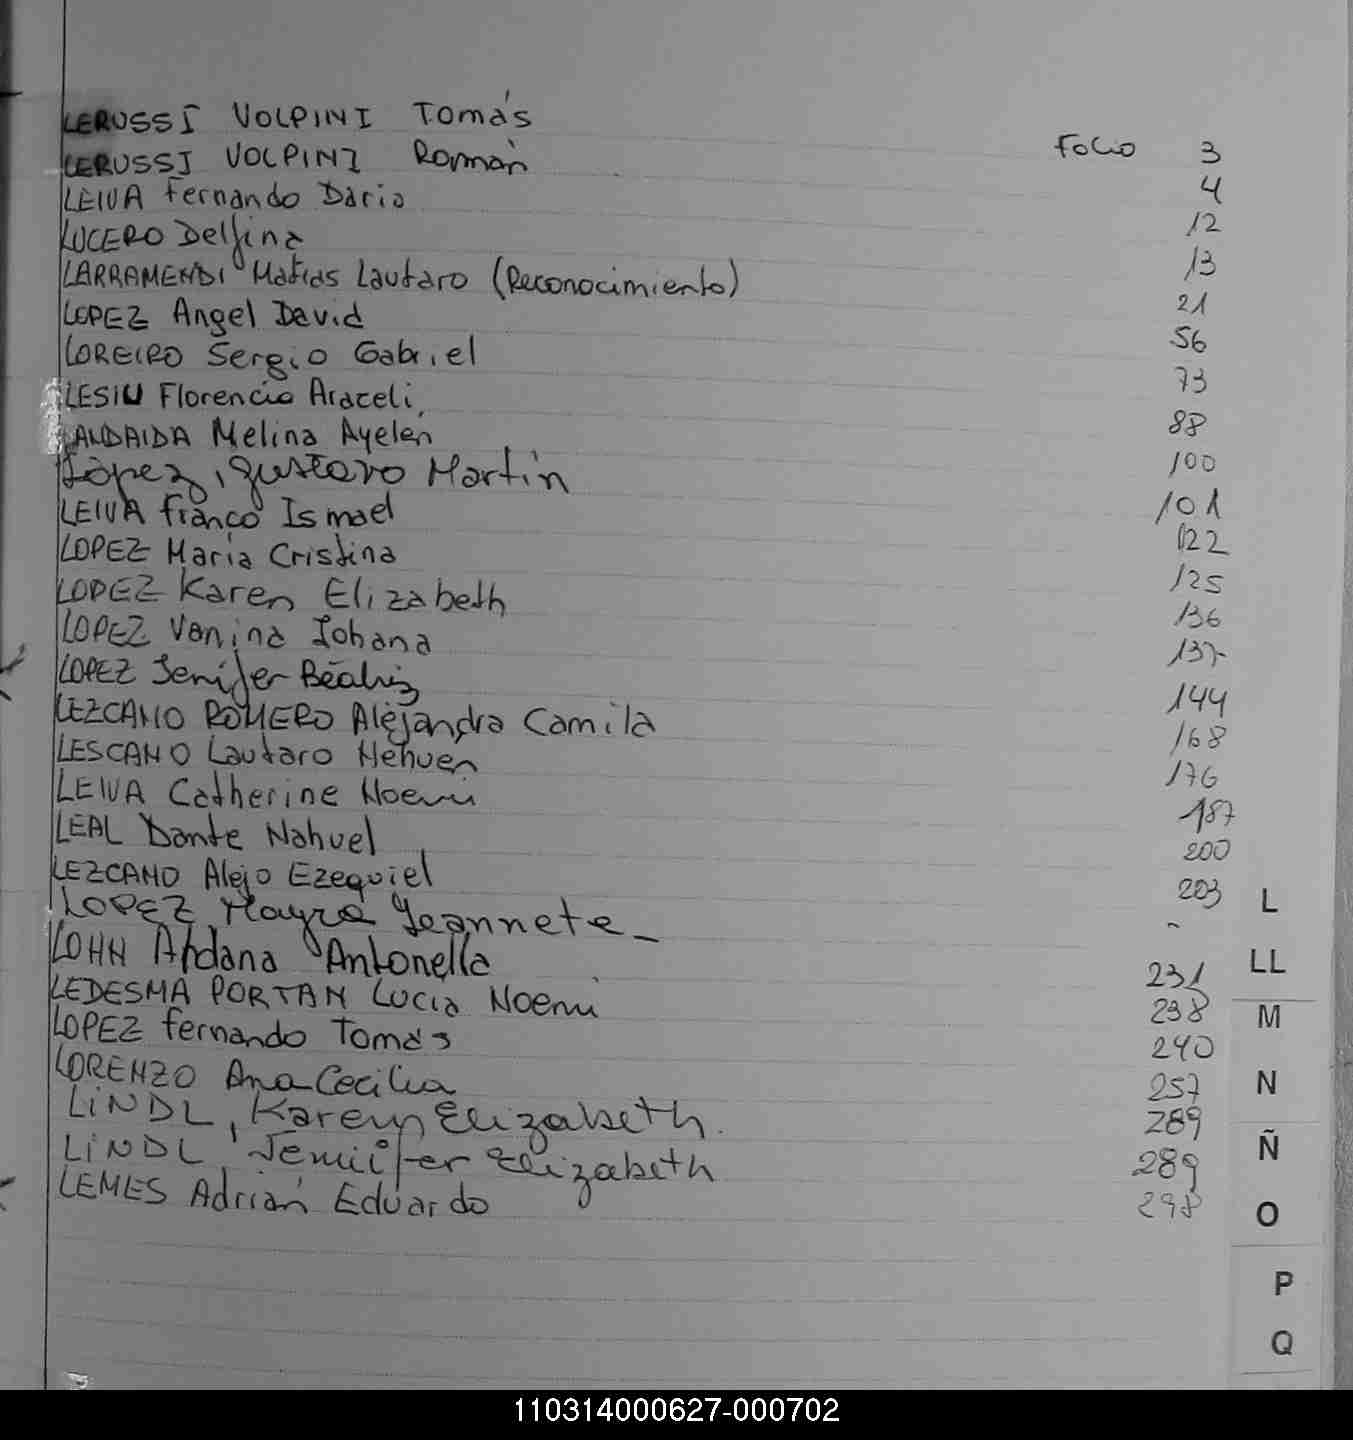 LERUSSI VOLPINI Tomás Folio 3
LERUSSI VOLPINI Román 4
LEIVA Fernando Dario 12
LUCERO Delfina 13
LARRAMENDI Matias Lautaro (Reconocimiento) 21
LOPEZ Angel David 56
LOREIRO Sergio Gabriel 73
LESIU Florencia Araceli 88
LANDAIDA Melina Ayelén 100
López, Gustavo Martin 101
LEIVA Franco Ismael 122
LOPEZ María Cristina 125
LOPEZ Karen Elizabeth 136
LOPEZ Vanina Johana 137
LOPEZ Jenifer Beatriz 144
LEZCANO ROMERO Alejandra Camila 168
LESCANO Lautaro Nehuen 176
LEIVA Catherine Noemi 187
LEAL Dante Nahuel 200
LEZCANO Alejo Ezequiel 203
LOPEZ Mayra Jeannete - -
LOHN Aldana Antonella 231
LEDESMA PORTAN Lucia Noemi 238
LOPEZ Fernando Tomás 240
LORENZO Ana Cecilia 257
LINDL, Karen Elizabeth. 289
LINDL, Jennifer Elizabeth 289
LEMES Adrián Eduardo 298
L
LL
M
N
Ñ
O
P
Q
110314000627-000702